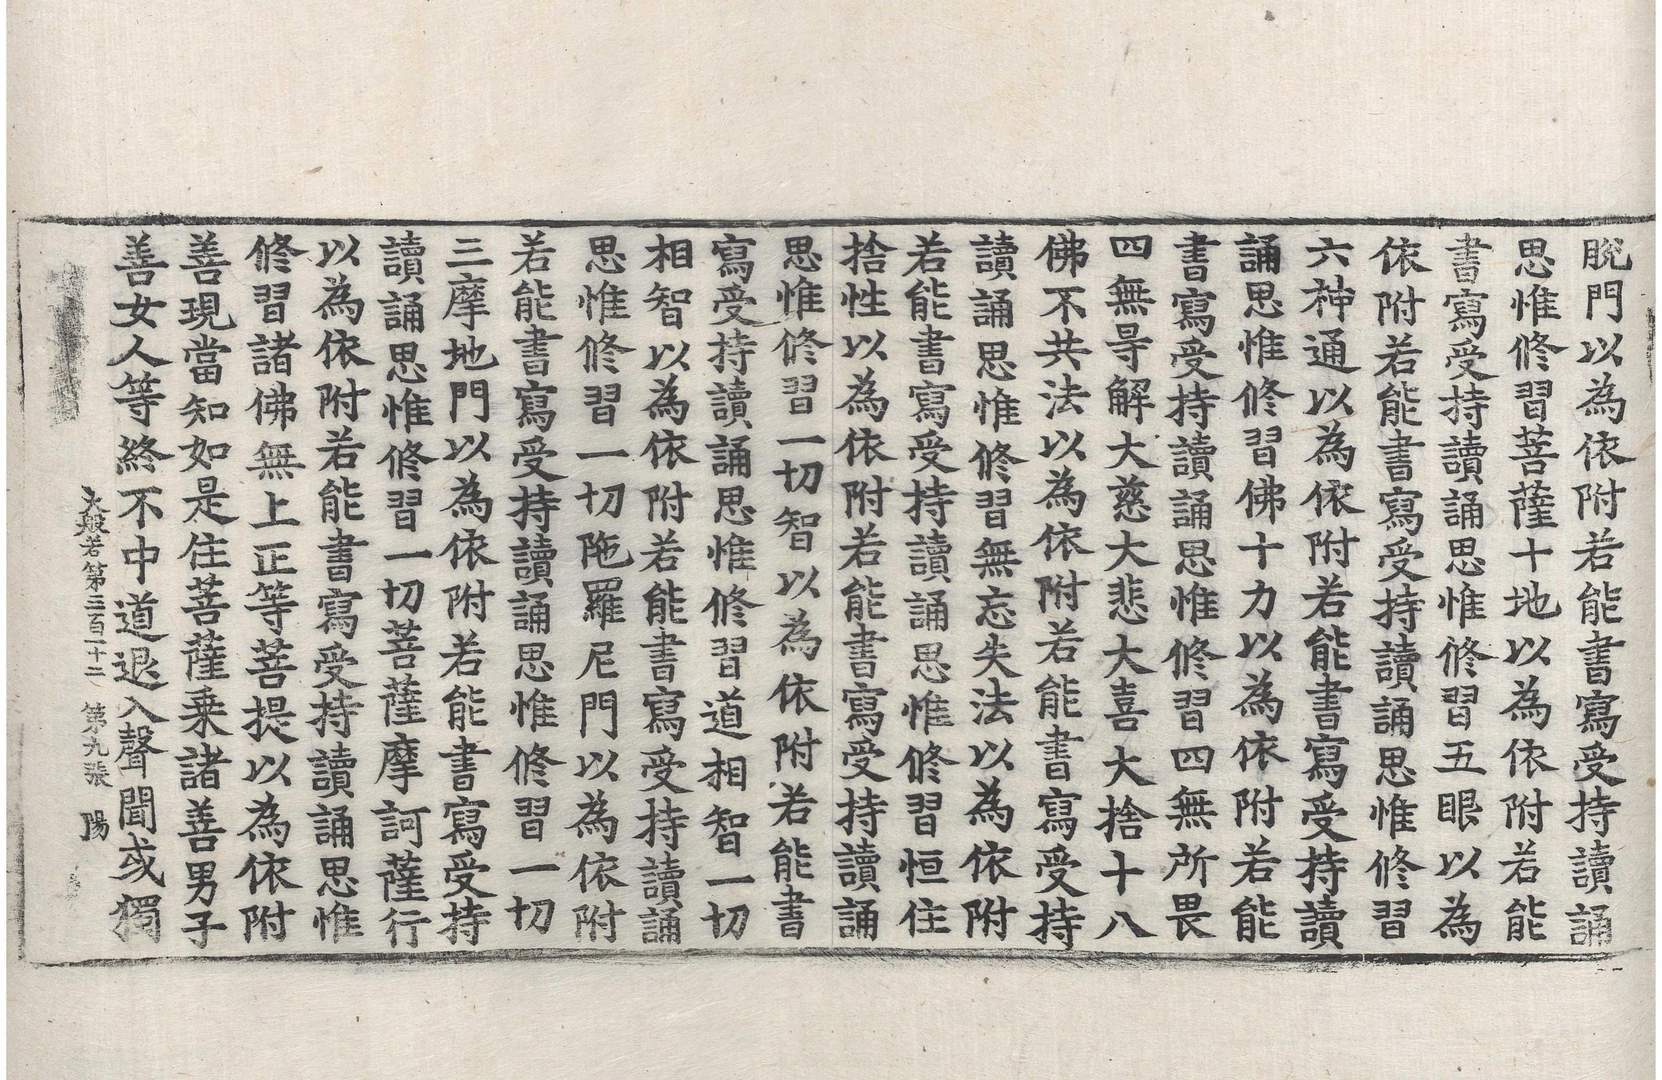 脫門以為依附若能書寫受持讀誦
思惟修習菩薩十地以為依附若能
書寫受持讀誦思惟修習五眼以為
依附若能書寫受持讀誦思惟修習
六神通以為依附若能書寫受持讀
誦思惟修習佛十力以為依附若能
書寫受持讀誦思惟修習四無所畏
四無㝵解大慈大悲大喜大捨十八
佛不共法以為依附若能書寫受持
讀誦思惟修習無忘失法以為依附
若能書寫受持讀誦思惟修習恒住
捨性以為依附若能書寫受持讀誦
思惟修習一切智以為依附若能書
寫受持讀誦思惟修習道相智一切
相智以為依附若能書寫受持讀誦
思惟修習一切陁羅尼門以為依附
若能書寫受持讀誦思惟修習一切
三摩地門以為依附若能書寫受持
讀誦思惟修習一切菩薩摩訶薩行
以為依附若能書寫受持讀誦思惟
修習諸佛無上正等菩提以為依附
善現當知如是住菩薩乘諸善男子
善女人等終不中道退入聲聞或獨
大般若第三百一十二 第九張 陽